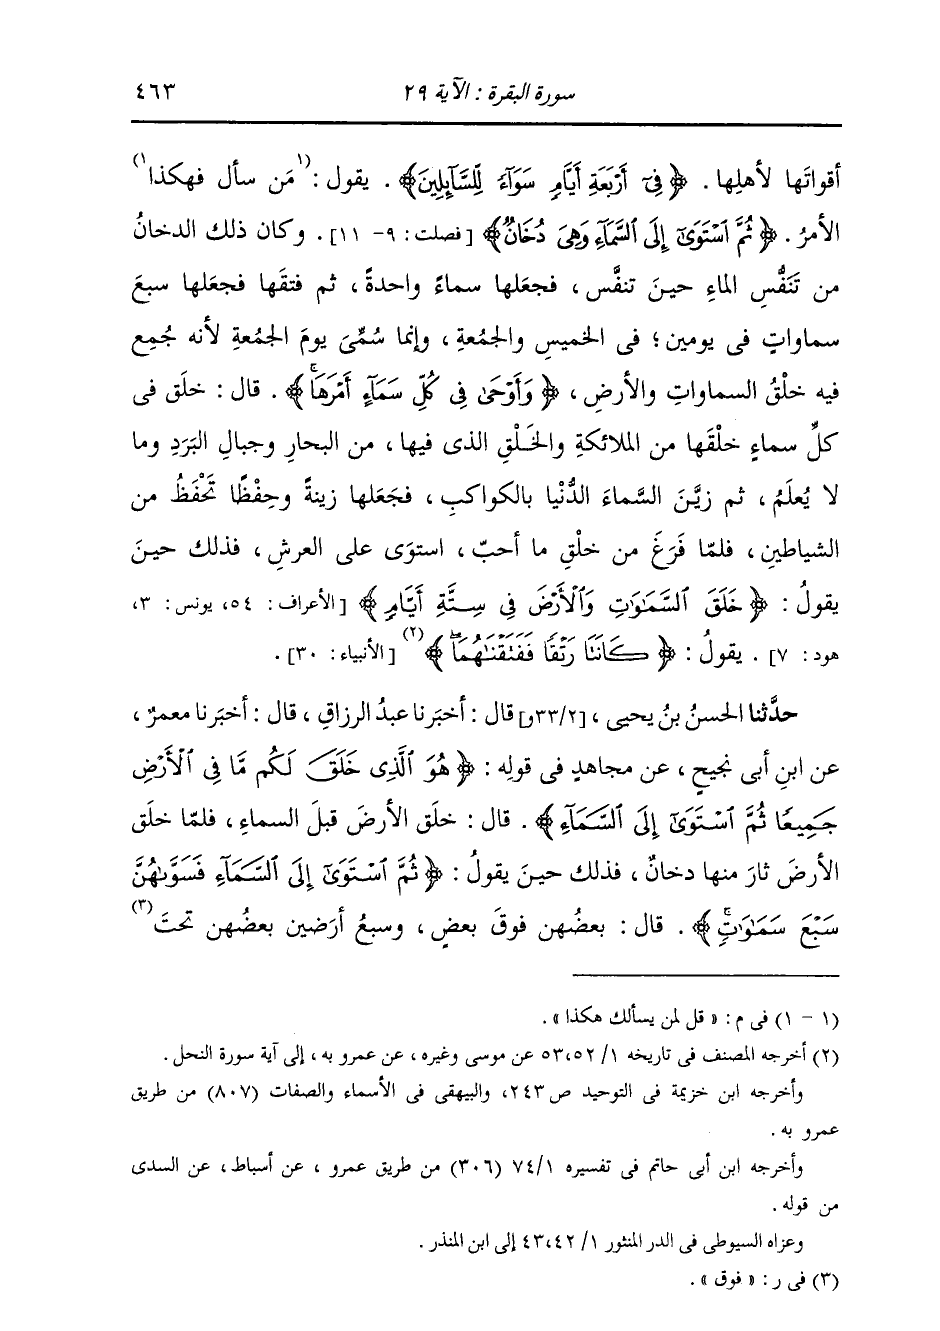 سورة البقرة : الآية ٢٩ ٤٦٣
أقواتَها لأهلِها . ﴿ فِىٓ أَرْبَعَةِ أَيَّامٍ سَوَآءً لِّلسَّآئِلِينَ﴾ . يقول : (١) مَن سأل فهكذا (١)
الأمرُ . ﴿ ثُمَّ ٱسْتَوَىٰٓ إِلَى ٱلسَّمَآءِ وَهِىَ دُخَانٌ﴾ [فصلت : ٩- ١١] . وكان ذلك الدخانُ
من تَنَفُّسِ الماءِ حينَ تنفَّس ، فجعلها سماءً واحدةً ، ثم فتقَها فجعلها سبعَ
سماواتٍ فى يومين ؛ فى الخميسِ والجمُعةِ ، وإنما سُمِّىَ يومَ الجمُعةِ لأنه جُمِع
فيه خلْقُ السماواتِ والأرضِ ، ﴿ وَأَوْحَىٰ فِى كُلِّ سَمَآءٍ أَمْرَهَاۚ ﴾ . قال : خلَق فى
كلِّ سماءٍ خلْقَها من الملائكةِ والخَلْقِ الذى فيها ، من البحارِ وجبالِ البَرَدِ وما
لا يُعلَمُ ، ثم زيَّنَ السَّماءَ الدُّنْيا بالكواكبِ ، فجعَلها زينةً وحِفْظًا تَحْفَظُ من
الشياطينِ ، فلمّا فَرَغَ من خلْقِ ما أحبّ ، استوَى على العرشِ ، فذلك حينَ
يقولُ : ﴿ خَلَقَ ٱلسَّمَٰوَٰتِ وَٱلْأَرْضَ فِى سِتَّةِ أَيَّامٍ ﴾ [الأعراف : ٥٤، يونس : ٣،
هود : ٧] . يقولُ : ﴿ كَانَتَا رَتْقًا فَفَتَقْنَٰهُمَاۖ ﴾ (٢) [الأنبياء : ٣٠] .
حدَّثنا الحسنُ بنُ يحيى ، [٣٣/٢و] قال : أخبَرنا عبدُ الرزاقِ ، قال : أخبَرنا معمرٌ ،
عن ابنِ أبى نجيحٍ ، عن مجاهدٍ فى قولِه : ﴿ هُوَ ٱلَّذِى خَلَقَ لَكُم مَّا فِى ٱلْأَرْضِ
جَمِيعًا ثُمَّ ٱسْتَوَىٰٓ إِلَى ٱلسَّمَآءِ ﴾ . قال : خلَق الأرضَ قبلَ السماءِ ، فلمّا خلَق
الأرضَ ثارَ منها دخانٌ ، فذلك حينَ يقولُ : ﴿ ثُمَّ ٱسْتَوَىٰٓ إِلَى ٱلسَّمَآءِ فَسَوَّىٰهُنَّ
سَبْعَ سَمَٰوَٰتٍۚ ﴾ . قال : بعضُهن فوقَ بعضٍ ، وسبعُ أرَضين بعضُهن تحتَ (٣)
(١ - ١) فى م : « قل لمن يسألك هكذا » .
(٢) أخرجه المصنف فى تاريخه ١/ ٥٢،٥٣ عن موسى وغيره ، عن عمرو به ، إلى آية سورة النحل .
وأخرجه ابن خزيمة فى التوحيد ص ٢٤٣، والبيهقى فى الأسماء والصفات (٨٠٧) من طريق
عمرو به .
وأخرجه ابن أبى حاتم فى تفسيره ٧٤/١ (٣٠٦) من طريق عمرو ، عن أسباط ، عن السدى
من قوله .
وعزاه السيوطى فى الدر المنثور ١/ ٤٢،٤٣ إلى ابن المنذر .
(٣) فى ر : « فوق » .